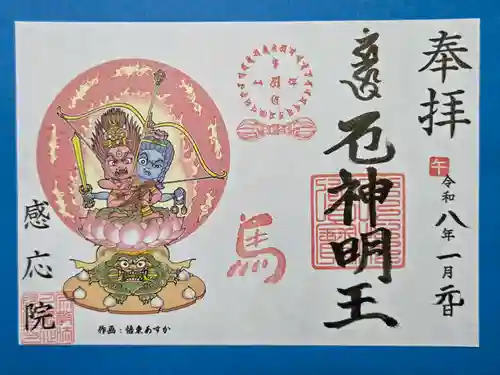 奉拝
午
令和八年一月元日
厄神明王
馬
感応院
作画：悟東あすか